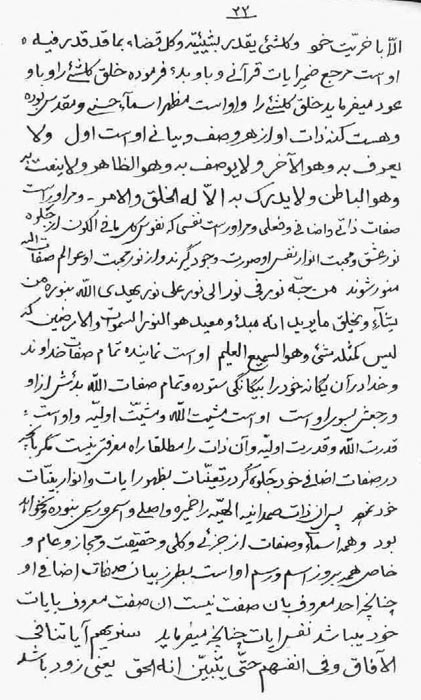 ٢٢
الّا باخریّت خو وکلشئ یقدر بشیئیّته وکل قضاء بما قد قدر فیه ه
اوست مرجع ضمیر ایات قرآنی و باو بدء فرموده خلق کلشئ را و باو
عود میفرماید خلق کلشئ را و اواست مظهر اسمآء حسنی و مقدس بوده
و هست کنه ذات او از هر وصف و بیانی اواست اول ولا
یعرف به وهو الآخر ولا یوصف به وهو الظاهر ولا ینعت به
وهو الباطن ولا یدرک به الّا له الخلق والامر - و مر اوراست
صفات ذاتی و اضافی و فعلی و مر اوراست نفسی که نفوس کل مافی الکون از جلوه
نور عشق و محبت انوار نفس او صورت وجود گیرند و از نور محبت او عوالم صفات الله
منور شوند من حبّه نور فی نور الی نور علی نور یهدی الله بنوره من
یشآء و یخلق ما یرید انه مبدء و معید هو النور السموات والارضین که
لیس کمثله شئ وهو السمیع العلیم اوست نماینده تمام صفات خداوند
و خدا در آن یگانه خود را به یگانگی ستوده و تمام صفات الله بدئش از او
و رجعش بسوی او است اوست مشیت الله و مشیّت اولیّه و اوست
قدرت الله و قدرت اولیّه و آن ذات را مطلقا راه معرفتی نیست مگر بآنکه
در صفات اضافی خود جلوه گر در تعیّنات بظهور ایات و انوار بیّنات
خود پس ان ذات صمدانیه الهیّه را ضمیره و اصلی و اسمی و رسمی نبوده و نخواهد
بود و همه اسمآء و صفات از جزئی و کلی و حقیقت و مجاز و عام و
خاص همه بروز اسم و رسم اواست بطرز بیان صفات اضافی او
چنانچه احد معروف بان صفت نیست ان صفت معروف بایات
خود میباشد نفس ایات چنانچه میفرماید سنریهم آیاتنا فی
الآفاق وفی انفسهم حتّی یتبیّن انه الحق یعنی زود باشد